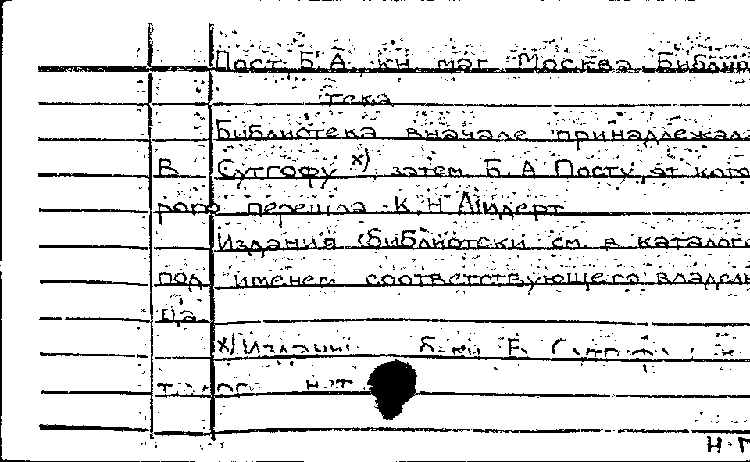 Пост, Б.А., кн. маг. Москва. Библио
тека
Библиотека вначале принадлежала
В. Сутгофу х), затем Б.А. Посту, от кото
рого перешла К.Н. Линдерт
Издания библиотеки см. в каталоге
под именем соответствующего владель
ца.
х) Изданий б-ки В.
нет
Н.Г